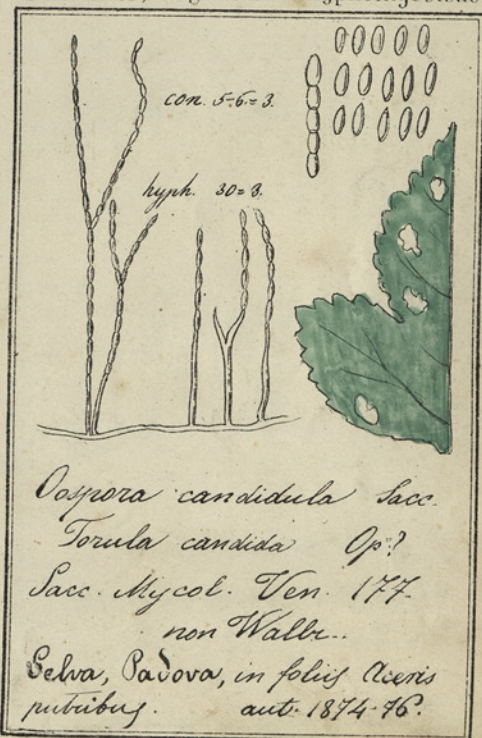 con. 5-6 = 3.
hyph. 30 = 3.
Oospora candidula Sacc.
Torula candida Op?
Sacc. Mycol. Ven. 177.
non Wallr..
Selva, Padova, in foliis Aceris
putribus. aut. 1874-76.